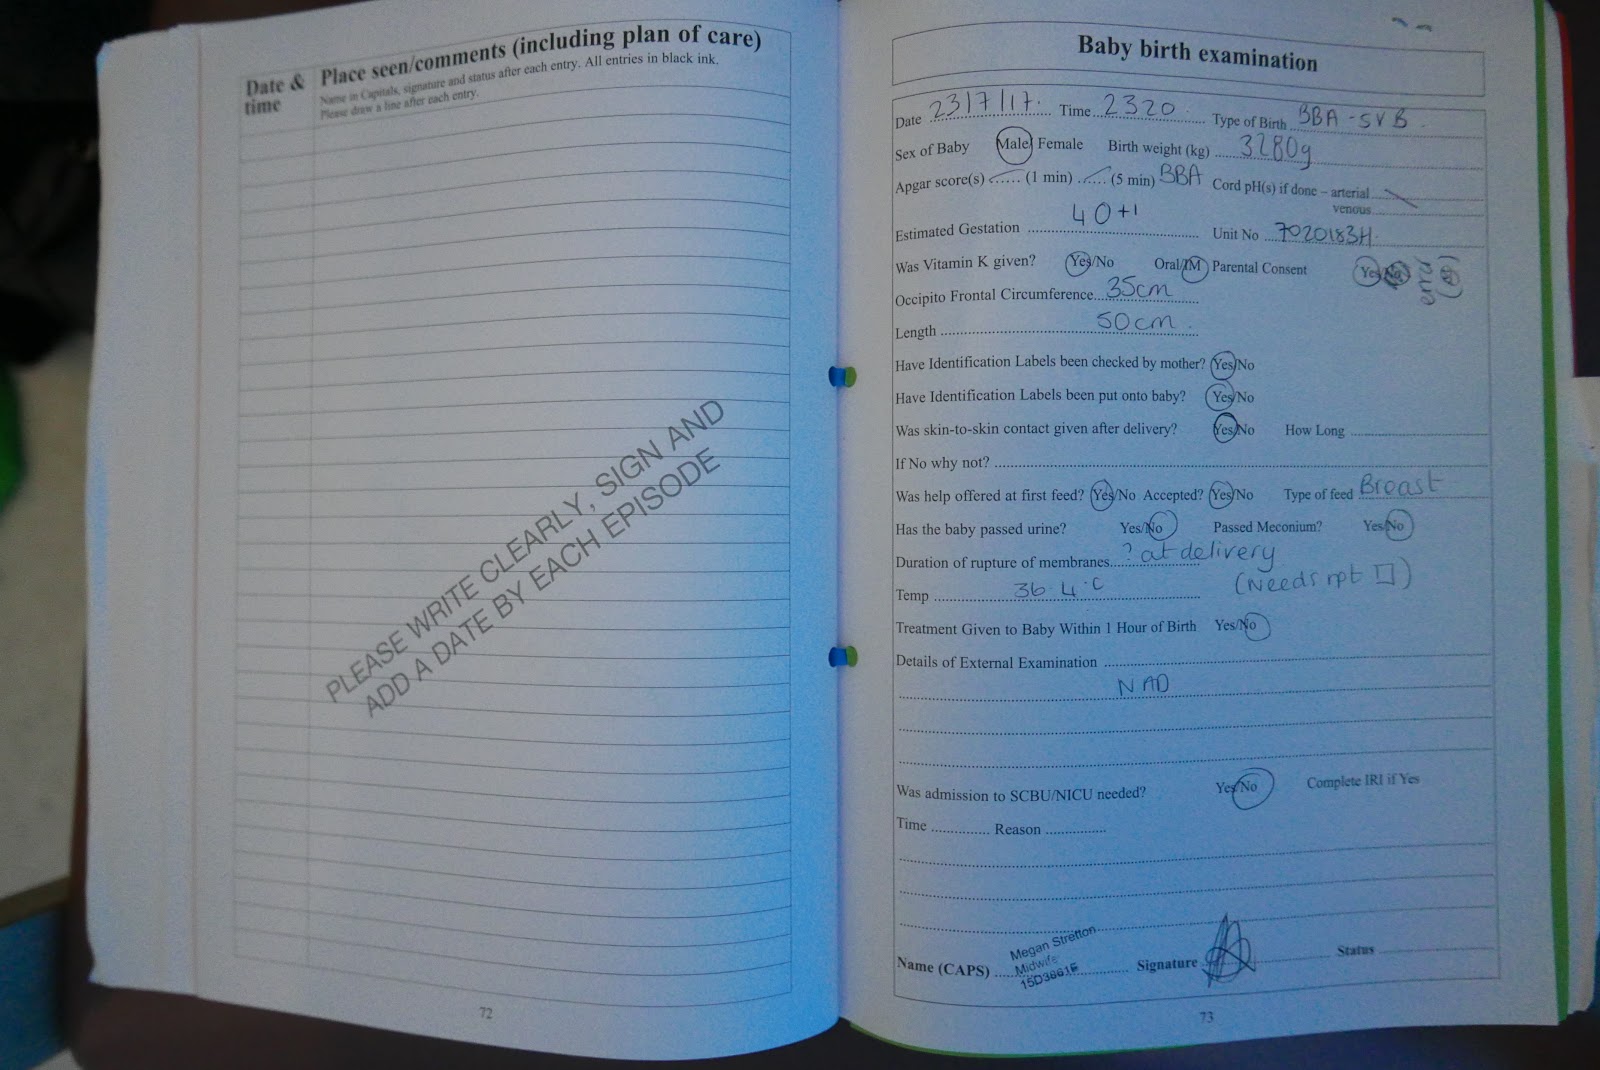 Date & time
Place seen/comments (including plan of care)
Name in Capitals, signature and status after each entry. All entries in black ink.
Please draw a line after each entry.
PLEASE WRITE CLEARLY, SIGN AND
ADD A DATE BY EACH EPISODE
72
Baby birth examination
Date 23/7/17. Time 2320 Type of Birth BBA - SVB
Sex of Baby Male/Female Birth weight (kg) 3280g
Apgar score(s) (1 min) (5 min) BBA Cord pH(s) if done – arterial
venous
Estimated Gestation 40+1 Unit No 7020183H
Was Vitamin K given? Yes/No Oral/IM Parental Consent Yes/No
Occipito Frontal Circumference 35cm
Length 50cm
Have Identification Labels been checked by mother? Yes/No
Have Identification Labels been put onto baby? Yes/No
Was skin-to-skin contact given after delivery? Yes/No How Long
If No why not?
Was help offered at first feed? Yes/No Accepted? Yes/No Type of feed Breast
Has the baby passed urine? Yes/No Passed Meconium? Yes/No
Duration of rupture of membranes ? at delivery
Temp 36.4°C (Needs rpt □)
Treatment Given to Baby Within 1 Hour of Birth Yes/No
Details of External Examination
NAD
Was admission to SCBU/NICU needed? Yes/No Complete IRI if Yes
Time Reason
Name (CAPS) Megan Stretton Signature Status
Midwife
15D3661E
73